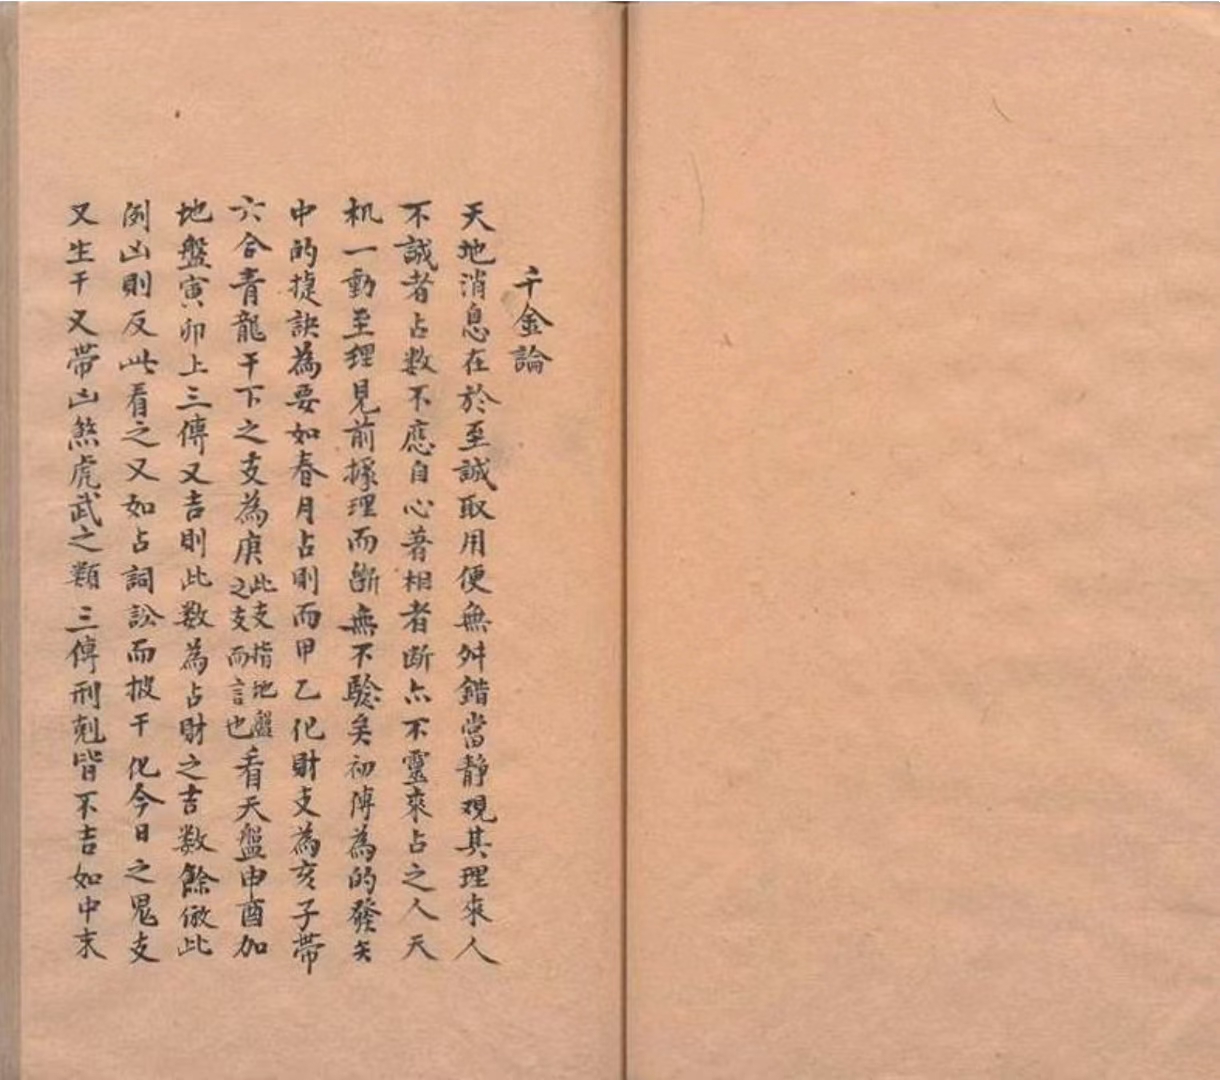 千金論
天地消息在於至誠取用便無舛錯當靜观其理來人
不誠者占数不應自心著相者断亦不靈來占之人天
机一動至理見前據理而斷無不驗矣初傳為的發矢
中的捷訣為要如春月占則而甲乙化財支為亥子帶
六合青龍干下之支為庚此支指地盤之支而言也看天盤申酉加
地盤寅卯上三傳又吉則此数為占財之吉数餘倣此
例凶則反此看之又如占詞訟而披干化今日之鬼支
又生干又帶凶煞虎武之類三傳刑剋皆不吉如中末